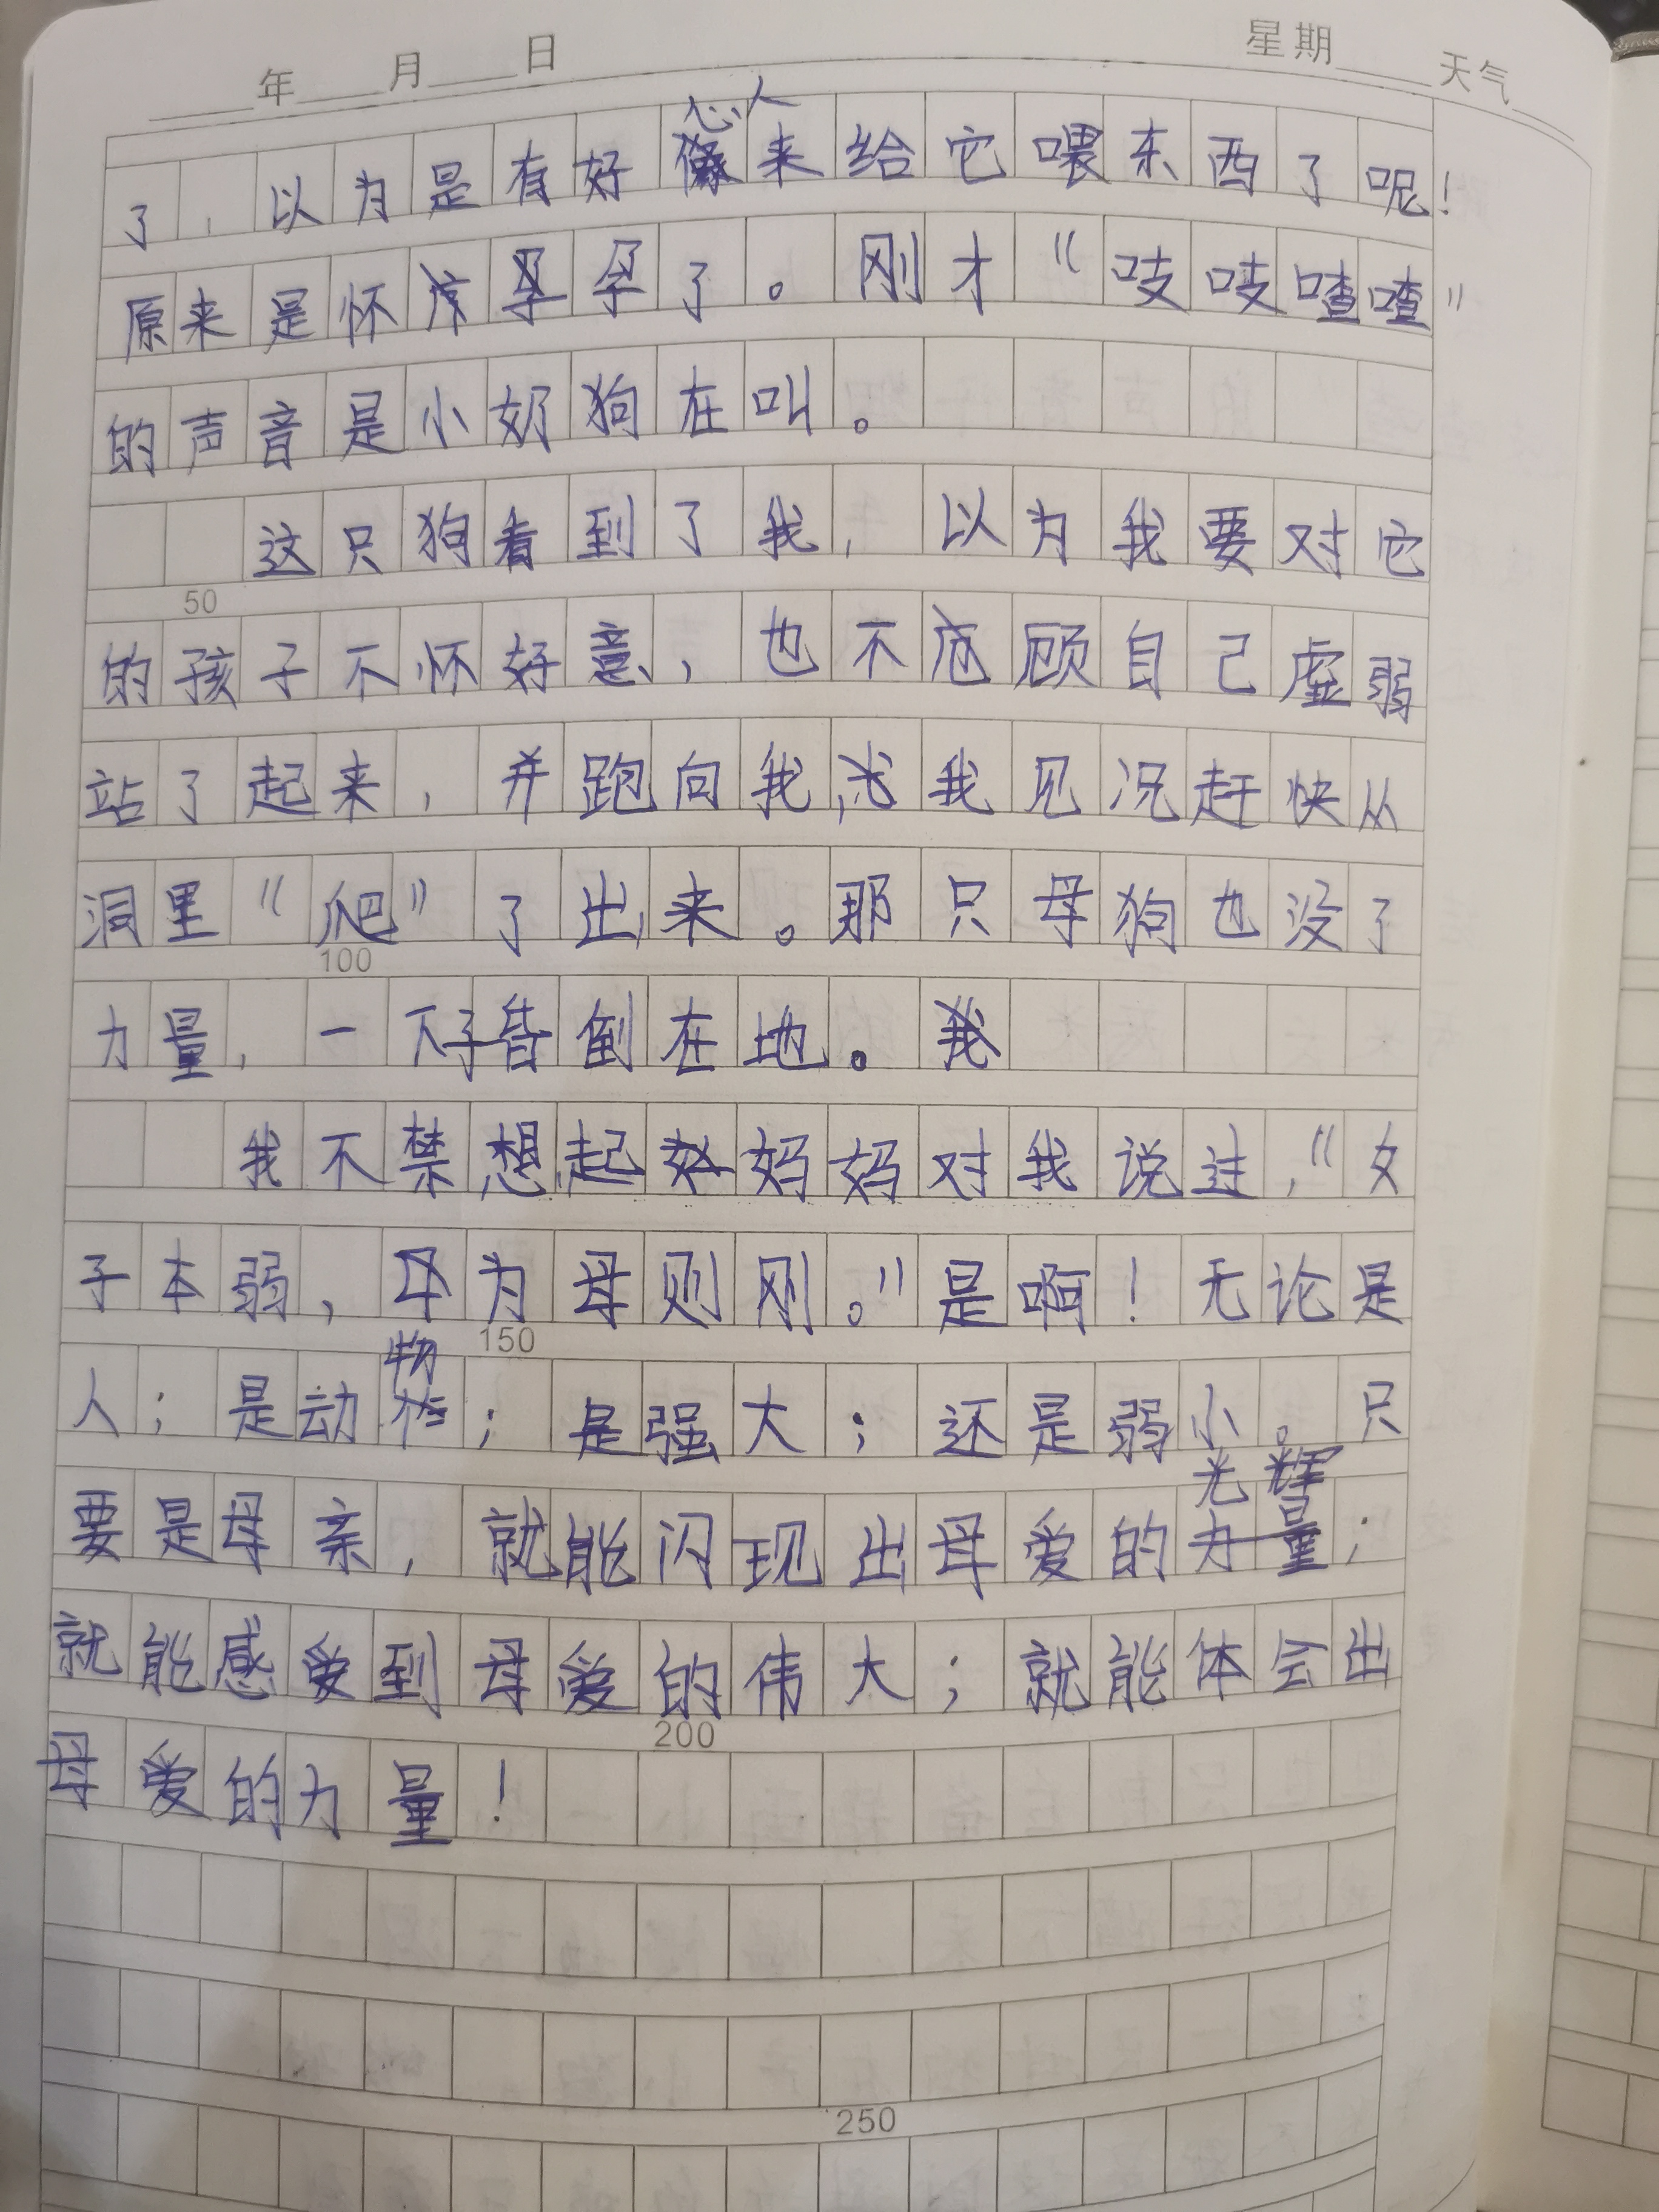 年 月 日 星期 天气
了，以为是有好心人来给它喂东西了呢！
原来是怀孕了。刚才“吱吱喳喳”
的声音是小奶狗在叫。
这只狗看到了我，以为我要对它
50
的孩子不怀好意，也不顾自己虚弱
站了起来，并跑向我，我见况赶快从
洞里“爬”了出来。那只母狗也没了
100
力量，一下子昏倒在地。
我不禁想起妈妈对我说过，“女
子本弱，为母则刚。”是啊！无论是
150
人；是动物；是强大；还是弱小。只
要是母亲，就能闪现出母爱的光辉；
就能感爱到母爱的伟大；就能体会出
200
母爱的力量！
250